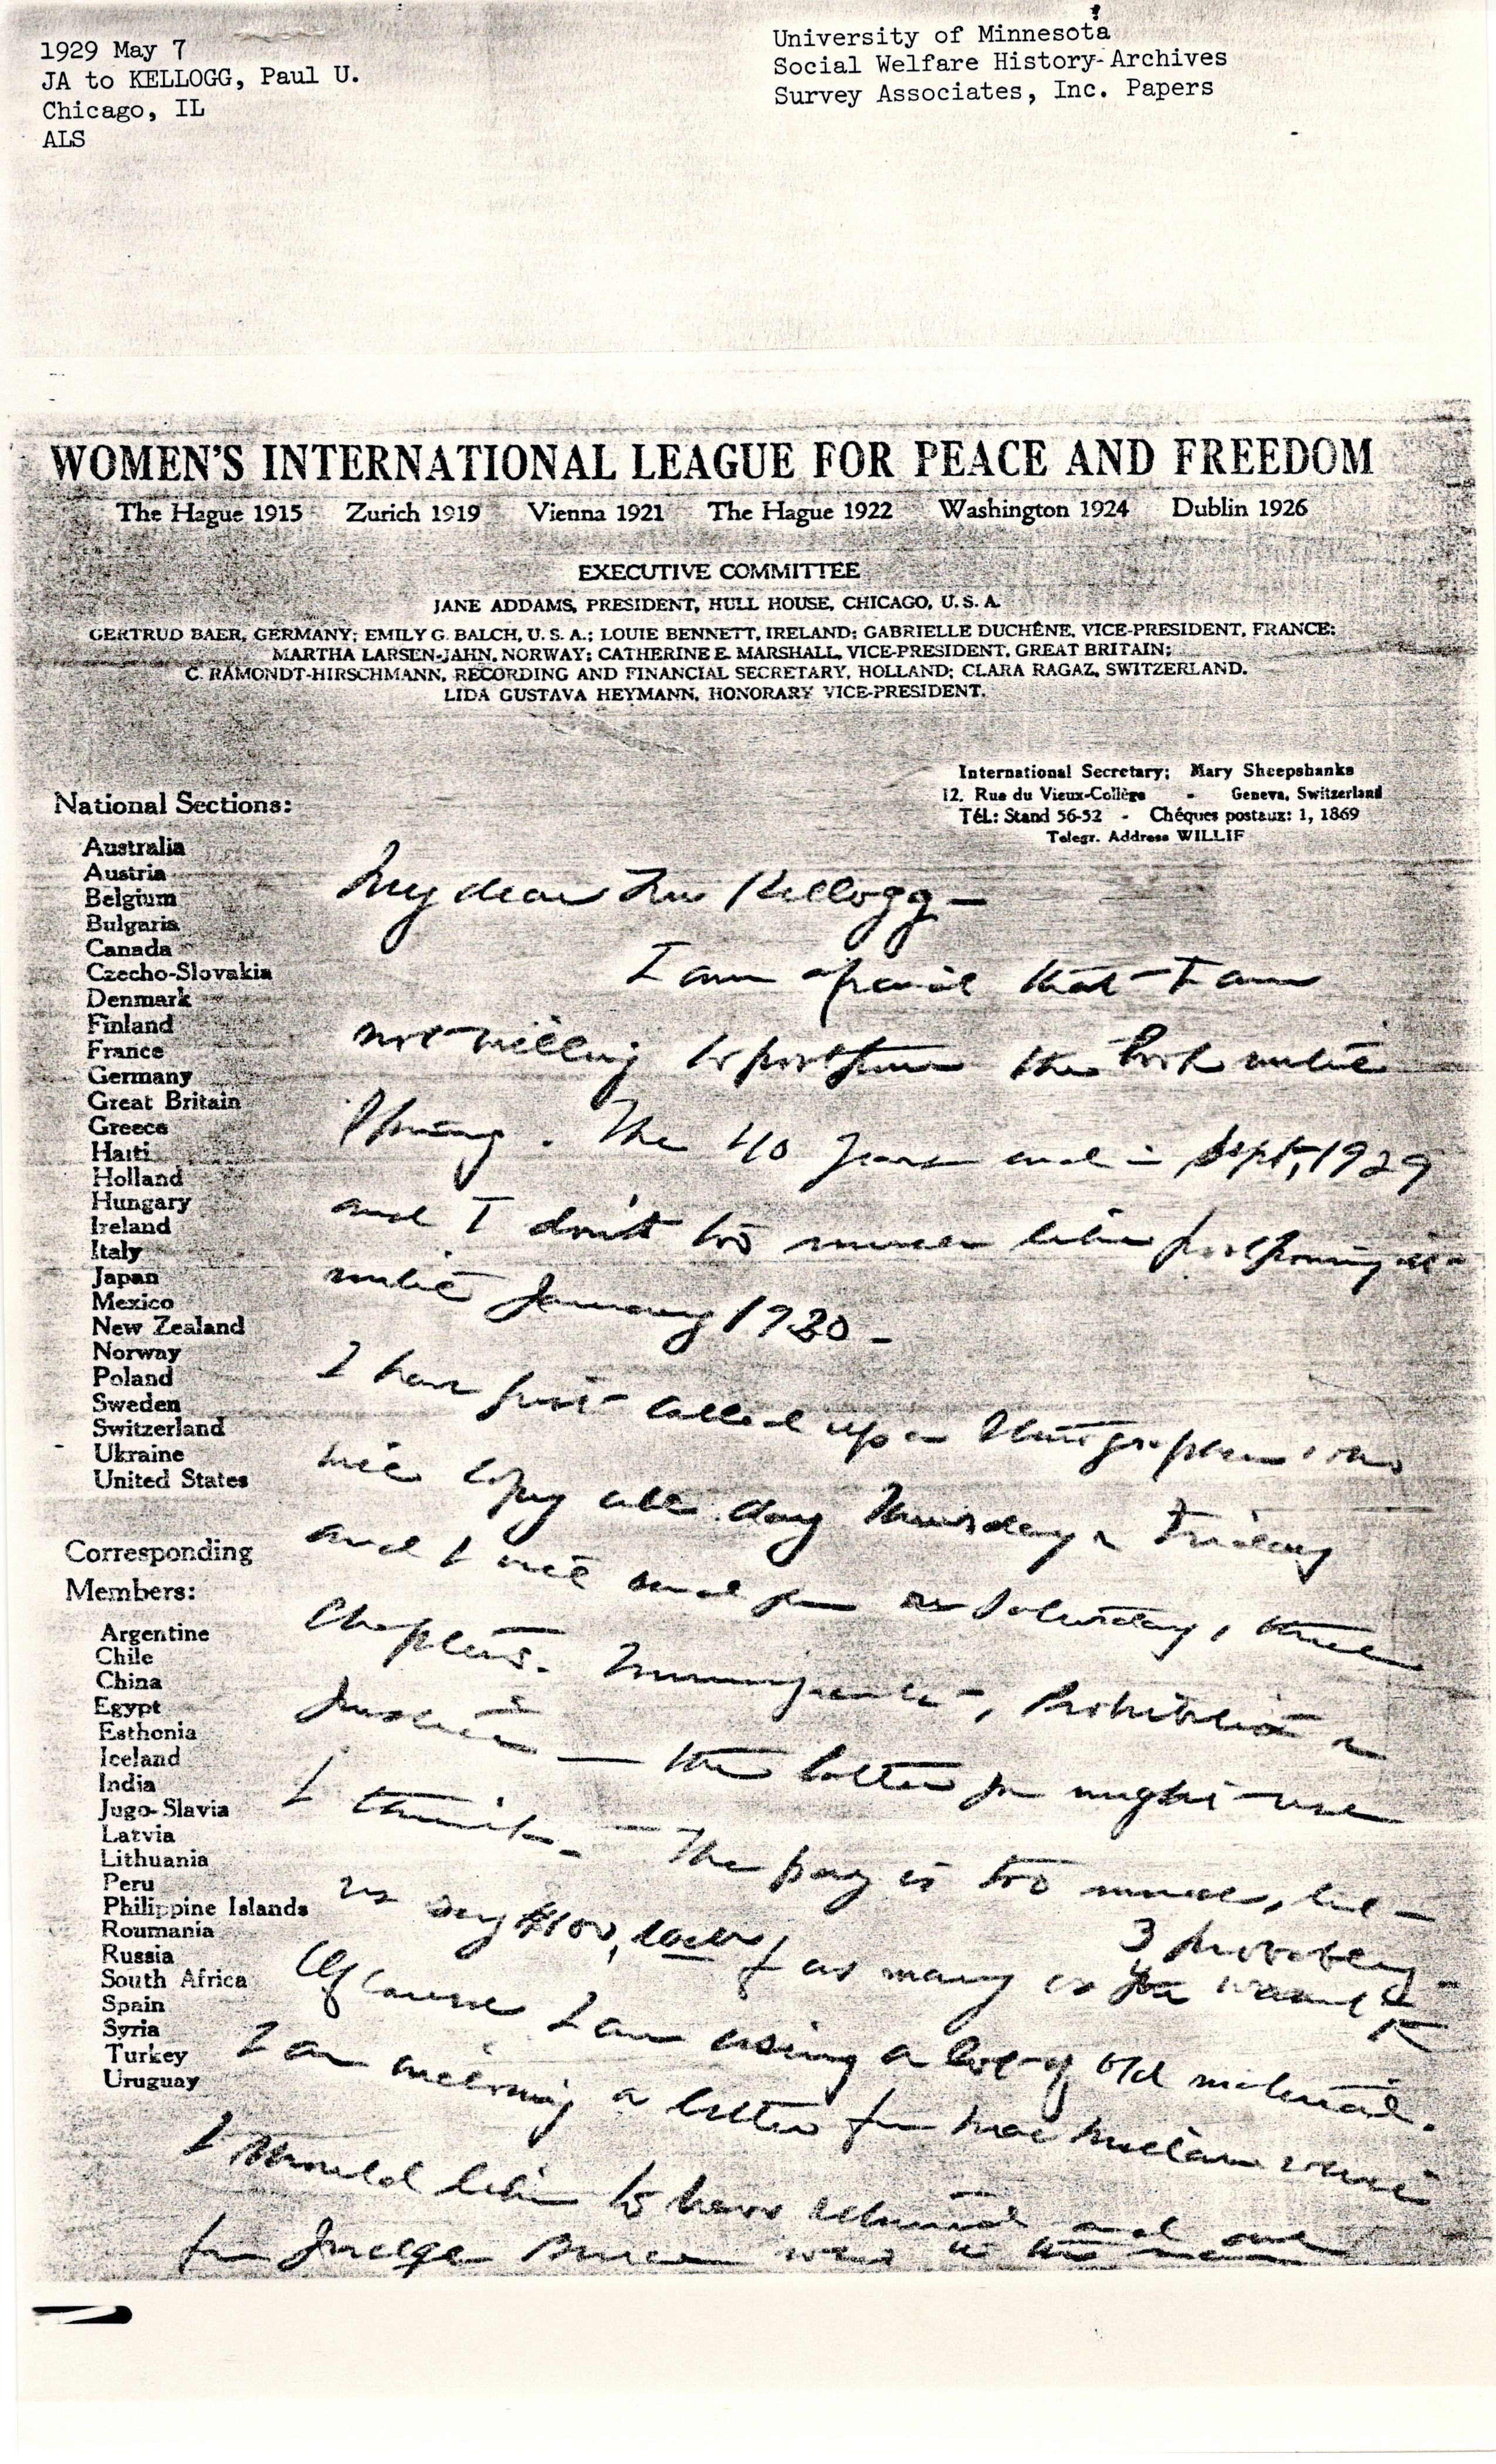 1929 May 7
JA to KELLOGG, Paul U.
Chicago, IL
ALS
University of Minnesota
Social Welfare History Archives
Survey Associates, Inc. Papers
WOMEN'S INTERNATIONAL LEAGUE FOR PEACE AND FREEDOM
The Hague 1915 Zurich 1919 Vienna 1921 The Hague 1922 Washington 1924 Dublin 1926
EXECUTIVE COMMITTEE
JANE ADDAMS, PRESIDENT, HULL HOUSE, CHICAGO, U. S. A.
GERTRUD BAER, GERMANY; EMILY G. BALCH, U. S. A.; LOUIE BENNETT, IRELAND; GABRIELLE DUCHÊNE, VICE-PRESIDENT, FRANCE;
MARTHA LARSEN-JAHN, NORWAY; CATHERINE E. MARSHALL, VICE-PRESIDENT, GREAT BRITAIN;
C. RAMONDT-HIRSCHMANN, RECORDING AND FINANCIAL SECRETARY, HOLLAND; CLARA RAGAZ, SWITZERLAND.
LIDA GUSTAVA HEYMANN, HONORARY VICE-PRESIDENT.
International Secretary: Mary Sheepshanks
12, Rue du Vieux-Collège - Geneva, Switzerland
Tél.: Stand 56-52 - Chéques postaux: 1, 1869
Telegr. Address WILLIF
National Sections:
Australia
Austria
Belgium
Bulgaria
Canada
Czecho-Slovakia
Denmark
Finland
France
Germany
Great Britain
Greece
Haiti
Holland
Hungary
Ireland
Italy
Japan
Mexico
New Zealand
Norway
Poland
Sweden
Switzerland
Ukraine
United States
Corresponding
Members:
Argentine
Chile
China
Egypt
Esthonia
Iceland
India
Jugo-Slavia
Latvia
Lithuania
Peru
Philippine Islands
Roumania
Russia
South Africa
Spain
Syria
Turkey
Uruguay
My dear Mr Kellogg -
I am afraid that I am
not willing to postpone the book until
Spring. The 40 years end in Sept, 1929
and I don't too much like postponing it
until January 1930 -
I have just called up a stenographer who
will copy all day Thursday & Friday
and I will send you on Saturday, three
Chapters. Immigrants, Prohibition &
Justice — the latter you might use
I think. — The pay is too much, let
us say $100, each & as many as you want
3 probably -
Of course I am using a lot of old material.
I am enclosing a letter from which
I would like to have returned and one
from Judge